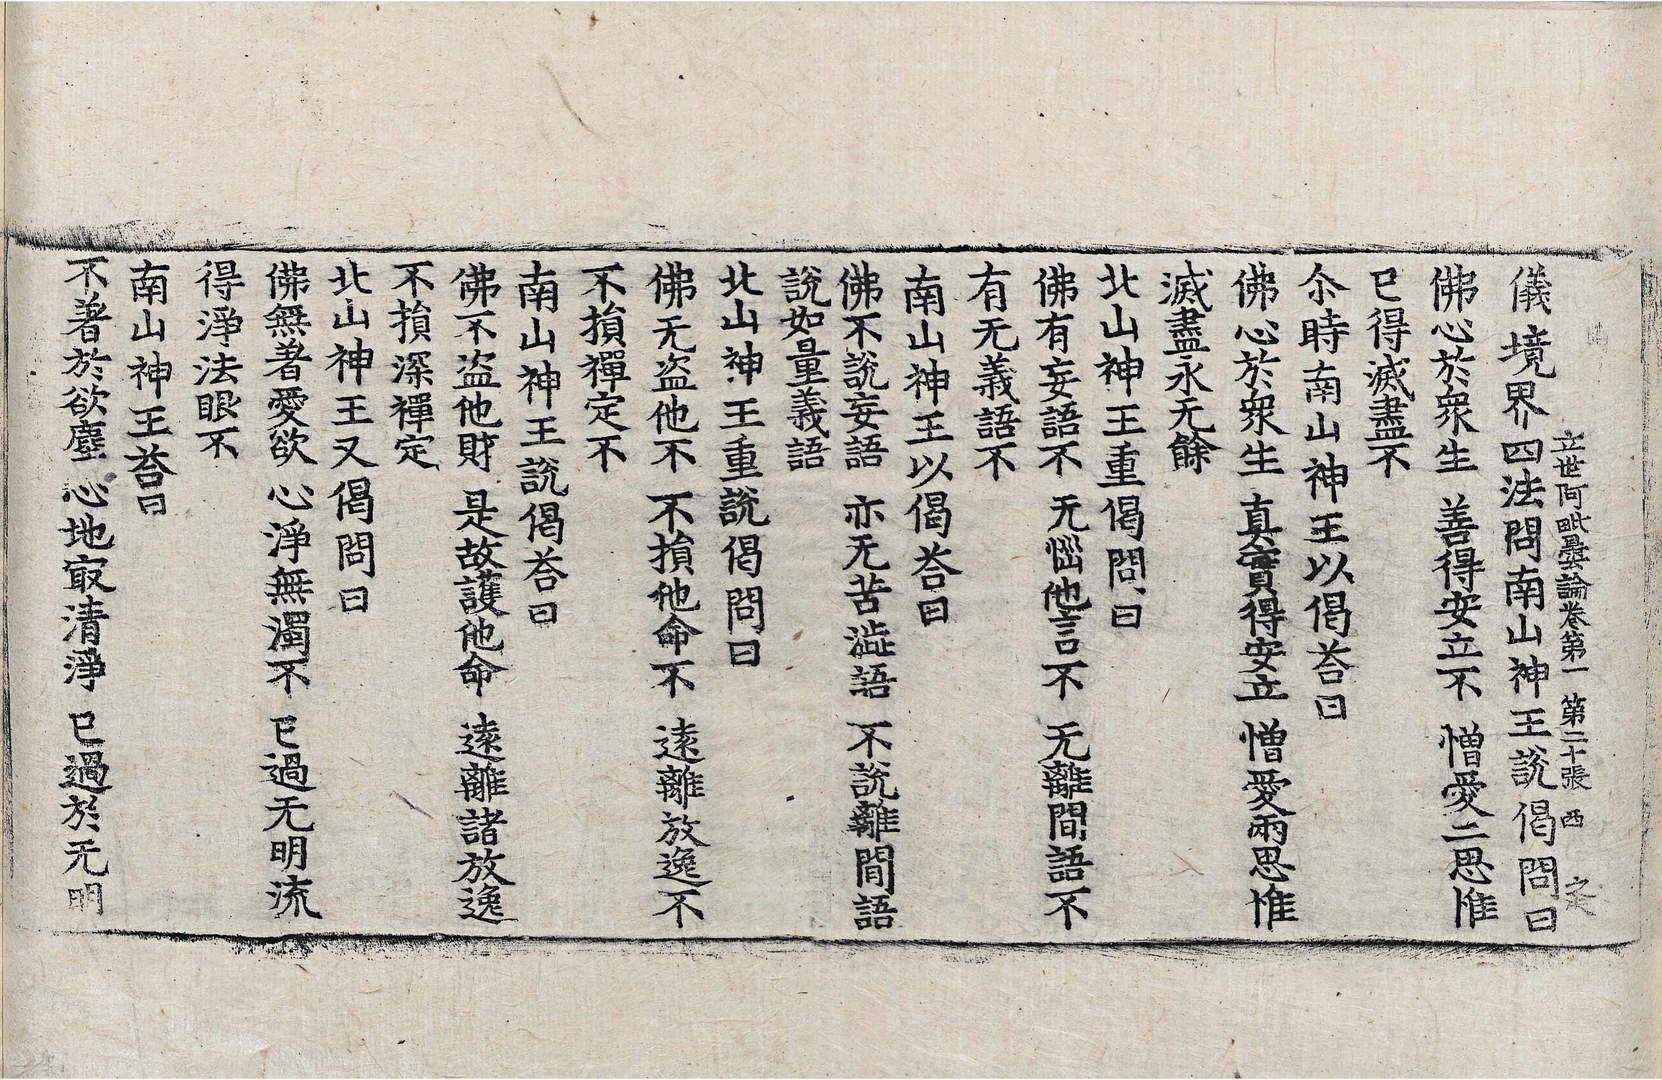 立世阿毗曇論卷第一 第二十張 西
儀境界四法問南山神王說偈問曰
佛心於衆生 善得安立不 憎愛二思惟
已得滅盡不
尒時南山神王以偈荅曰
佛心於衆生 真實得安立 憎愛兩思惟
滅盡永无餘
北山神王重偈問曰
佛有妄語不 无惱他言不 无離間語不
有无義語不
南山神王以偈荅曰
佛不說妄語 亦无苦澁語 不說離間語
說如量義語
北山神王重說偈問曰
佛无盗他不 不損他命不 逺離放逸不
不損禪定不
南山神王說偈荅曰
佛不盗他財 是故護他命 逺離諸放逸
不損深禪定
北山神王又偈問曰
佛無著愛欲 心淨無濁不 已過无明流
得淨法眼不
南山神王荅曰
不著於欲塵 心地㝡清淨 已過於无明